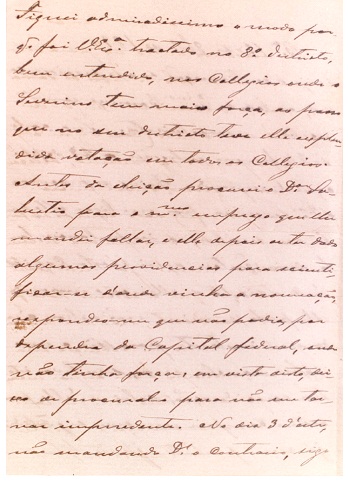 Fiquei admiradissimo o modo por
q̃ foi V.Exª tractado no 8º districto,
bem entendido, nos Collegios onde o
Severino tem mais força, ao passo
que no seu districto teve elle esplen-
dida votação em todos os Collegios.
Antes da eleição procurei o Dr.
para o mmo emprego que lhe
mandei fallar, e elle depois de ter dado
algumas providencias para scienti-
ficar-se d'onde vinha a nomeação,
respondeu-me que não podia, por
depender da Capital federal, onde
não tinha força; em vista disto, dei-
xo de procural-o para não me tor-
nar imprudente. No dia 3 d'este,
não mandando D.s o contrario, sigo